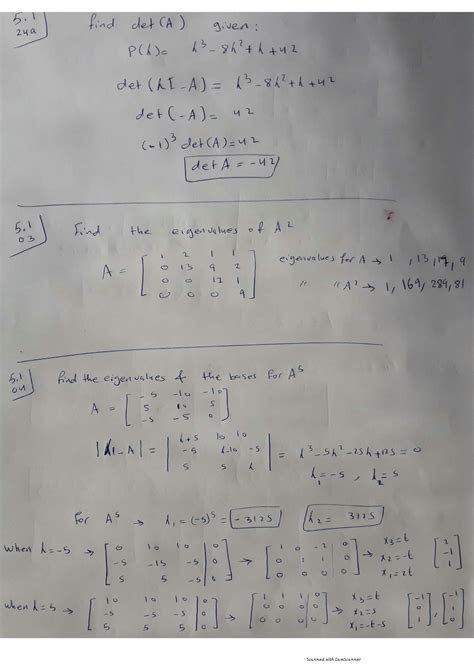 5.1
24a
find det(A) given:
P(λ) = λ³ - 8λ² + λ + 42
det(λI - A) = λ³ - 8λ² + λ + 42
det(-A) = 42
(-1)³ det(A) = 42
det A = -42
5.1
03
Find the eigenvalues of A²
A = [1 2 1 1
0 13 9 2
0 0 1
0 0 0 9]
eigenvalues for A → 1, 13, 17, 9
" " A² → 1, 169, 289, 81
5.1
04
find the eigenvalues & the bases for A⁵
A = [-5 -10 -10
5 10 5
-5 -5 0]
|λI - A| = |λ+5 10 10
-5 λ-10 -5
5 5 λ| = λ³ - 5λ² - 25λ + 125 = 0
λ₁ = -5, λ₂ = 5
for A⁵ → λ₁ = (-5)⁵ = -3125 λ₂ = 3125
when λ = -5 → [0 10 10 | 0
-5 -15 -5 | 0
5 5 -5 | 0] → [1 0 -2 | 0
0 1 1 | 0
0 0 0 | 0] → x₃ = t
x₂ = -t
x₁ = 2t
[2
-1
1]
when λ = 5 → [10 10 10 | 0
-5 -5 -5 | 0
5 5 5 | 0] → [1 1 1 | 0
0 0 0 | 0
0 0 0 | 0] → x₃ = t
x₂ = s
x₁ = -t-s
[-1
0
1], [-1
1
0]
Scanned with CamScanner